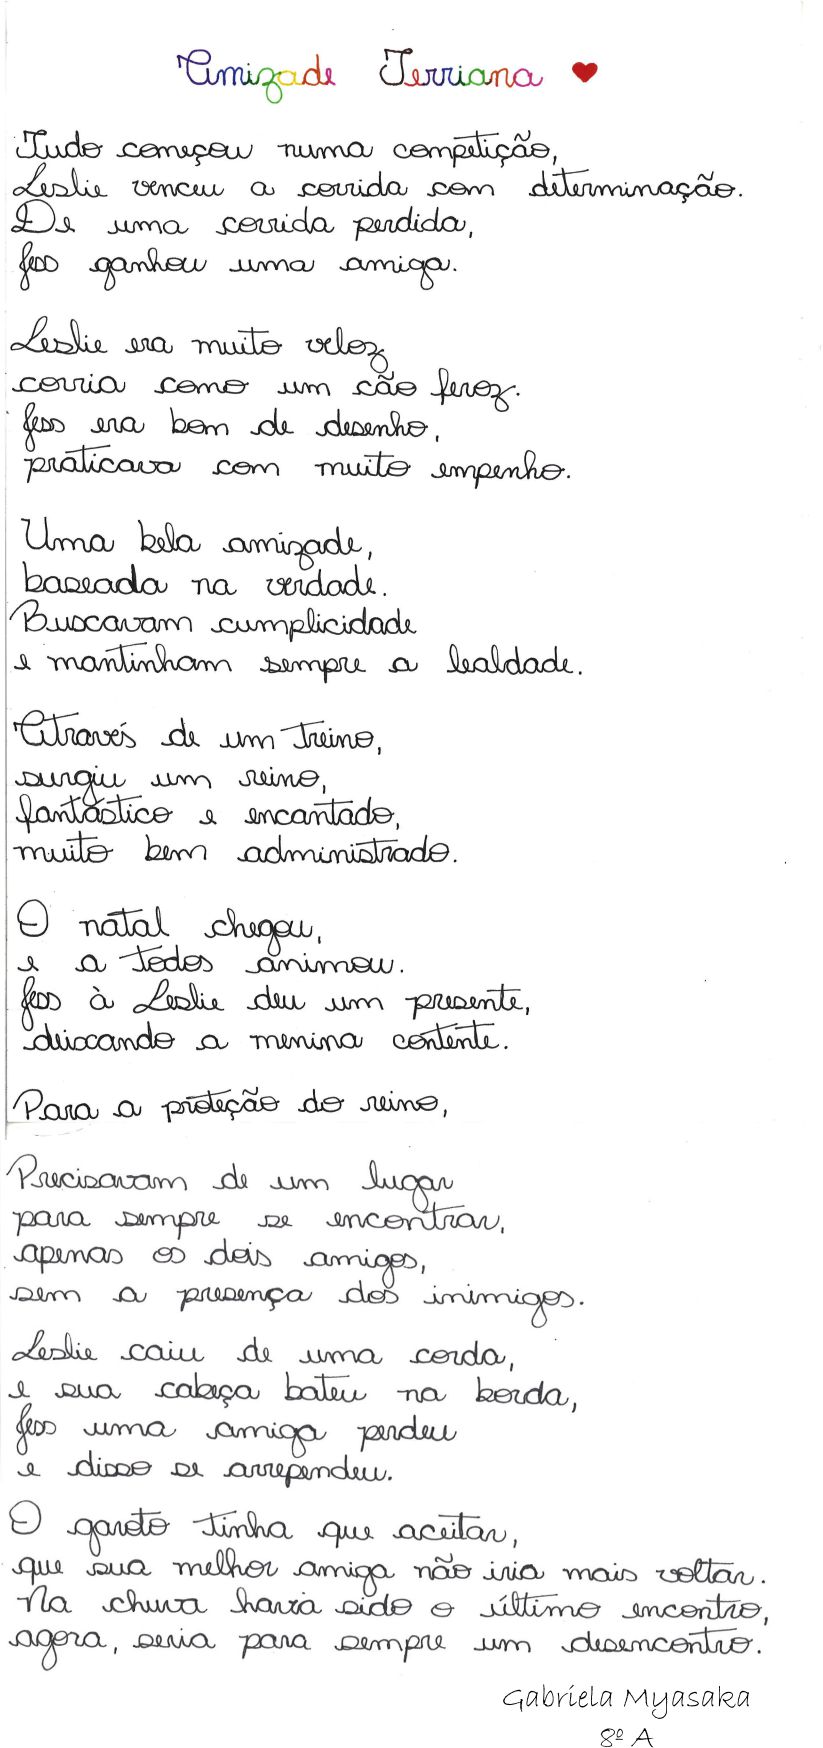 Amizade Terriana
Tudo começou numa competição,
Leslie venceu a corrida com determinação.
De uma corrida perdida,
Jess ganhou uma amiga.
Leslie era muito veloz
corria como um cão feroz.
Jess era bom de desenho,
praticava com muito empenho.
Uma bela amizade,
baseada na verdade.
Buscavam cumplicidade
e mantinham sempre a lealdade.
Através de um treino,
surgiu um reino,
fantástico e encantado,
muito bem administrado.
O natal chegou,
e a todos animou.
Jess à Leslie deu um presente,
deixando a menina contente.
Para a proteção do reino,
Precisavam de um lugar
para sempre se encontrar,
apenas os dois amigos,
sem a presença dos inimigos.
Leslie caiu de uma corda,
e sua cabeça bateu na borda,
Jess uma amiga perdeu
e disso se arrependeu.
O garoto tinha que aceitar,
que sua melhor amiga não iria mais voltar.
Na chuva havia sido o último encontro,
agora, seria para sempre um desencontro.
Gabriela Myasaka
8º A